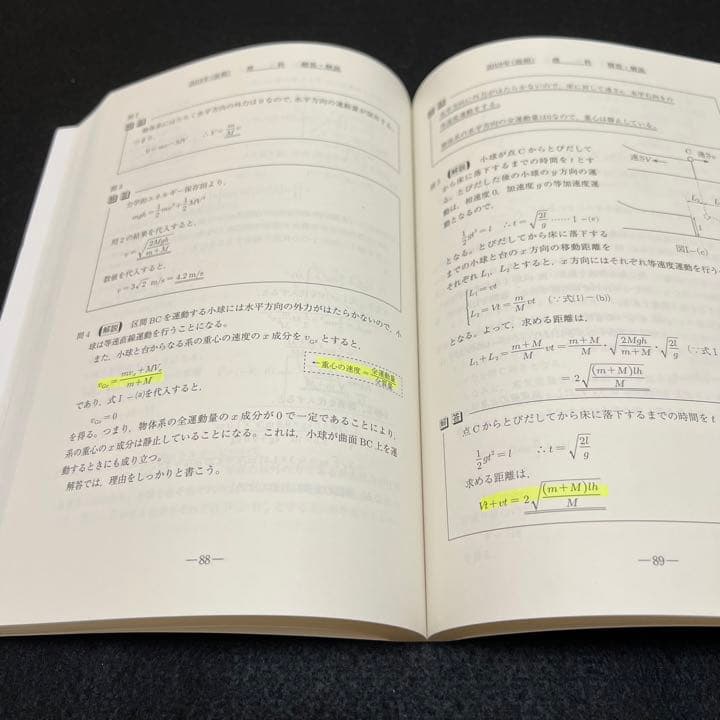 2019年(後期)
解答・解説
問2
解答
物体系にはたらく水平方向の外力は0なので、水平方向の運動量が保存する。
つまり、
0=mv−MV ∴V=m/M v
問3
解答
力学的エネルギー保存則より、
mgh=1/2 mv²+1/2 MV²
問2の結果を代入すると、
v=√(2Mgh/(m+M))
数値を代入すると、
v=3√2 m/s=4.2 m/s
問4 解説 区間BCを運動する小球には水平方向の外力がはたらかないので、小
球は等速直線運動を行うことになる。
また、小球と台からなる系の重心の速度のx成分をvGxとすると、
vGx=(mvx+MVx)/(m+M)
←重心の速度=全運動量/全質量
であり、式Ⅰ−(a)を代入すると、
vGx=0
を得る。つまり、物体系の全運動量のx成分が0で一定であることにより、
系の重心のx成分は静止していることになる。これは、小球が曲面BC上を運
動するときにも成り立つ。
解答では、理由をしっかりと書こう。
—88—
2019年(後期)
解答・解説
解答
水平方向に外力がはたらかないので、床に対して速さv、水平右向きの
等速度運動をする。
物体系の水平方向の全運動量は0なので、重心は静止している。
問5 解説 小球が点Cからとびだして
から床に落下するまでの時間をtとす
る。とびだした後の小球のy方向の運
動は、初速度0、加速度gの等加速度運
動となるので、
1/2 gt²=l ∴t=√(2l/g) ……Ⅰ−(e)
となる。とびだしてから床に落下する
までの小球と台のx方向の移動距離を
それぞれL₁、L₂とすると、x方向にはそれぞれ等速度運動を行う
C
速さV
速さv
L₂
l
図Ⅰ−(c)
L₁=vt
L₂=Vt=m/M vt (∵式Ⅰ−(b))
となる。よって、求める距離は、
L₁+L₂=(m+M)/M vt=(m+M)/M・√(2Mgh/(m+M))・√(2l/g) (∵式Ⅰ
=2√((m+M)lh/M)
解答
点Cからとびだしてから床に落下するまでの時間をt
1/2 gt²=l ∴t=√(2l/g)
求める距離は、
Vt+vt=2√((m+M)lh/M)
—89—